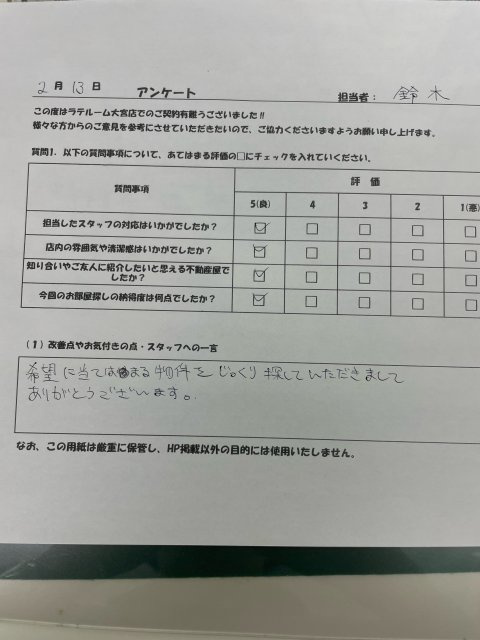 2月13日 アンケート 担当者： 鈴木
この度はラテルーム大宮店でのご契約有難うございました!!
様々な方からのご意見を参考にさせていただきたいので、ご協力くださいますようお願い申し上げます。
質問1. 以下の質問事項について、あてはまる評価の□にチェックを入れてください。
質問事項 評 価
5(良) 4 3 2 1(悪)
担当したスタッフの対応はいかがでしたか？
店内の雰囲気や清潔感はいかがでしたか？
知り合いやご友人に紹介したいと思える不動産屋で
したか？
今回のお部屋探しの納得度は何点でしたか？
（1）改善点やお気付きの点・スタッフへの一言
希望に当てはまる物件をじっくり探していただきまして
ありがとうございます。
なお、この用紙は厳重に保管し、HP掲載以外の目的には使用いたしません。